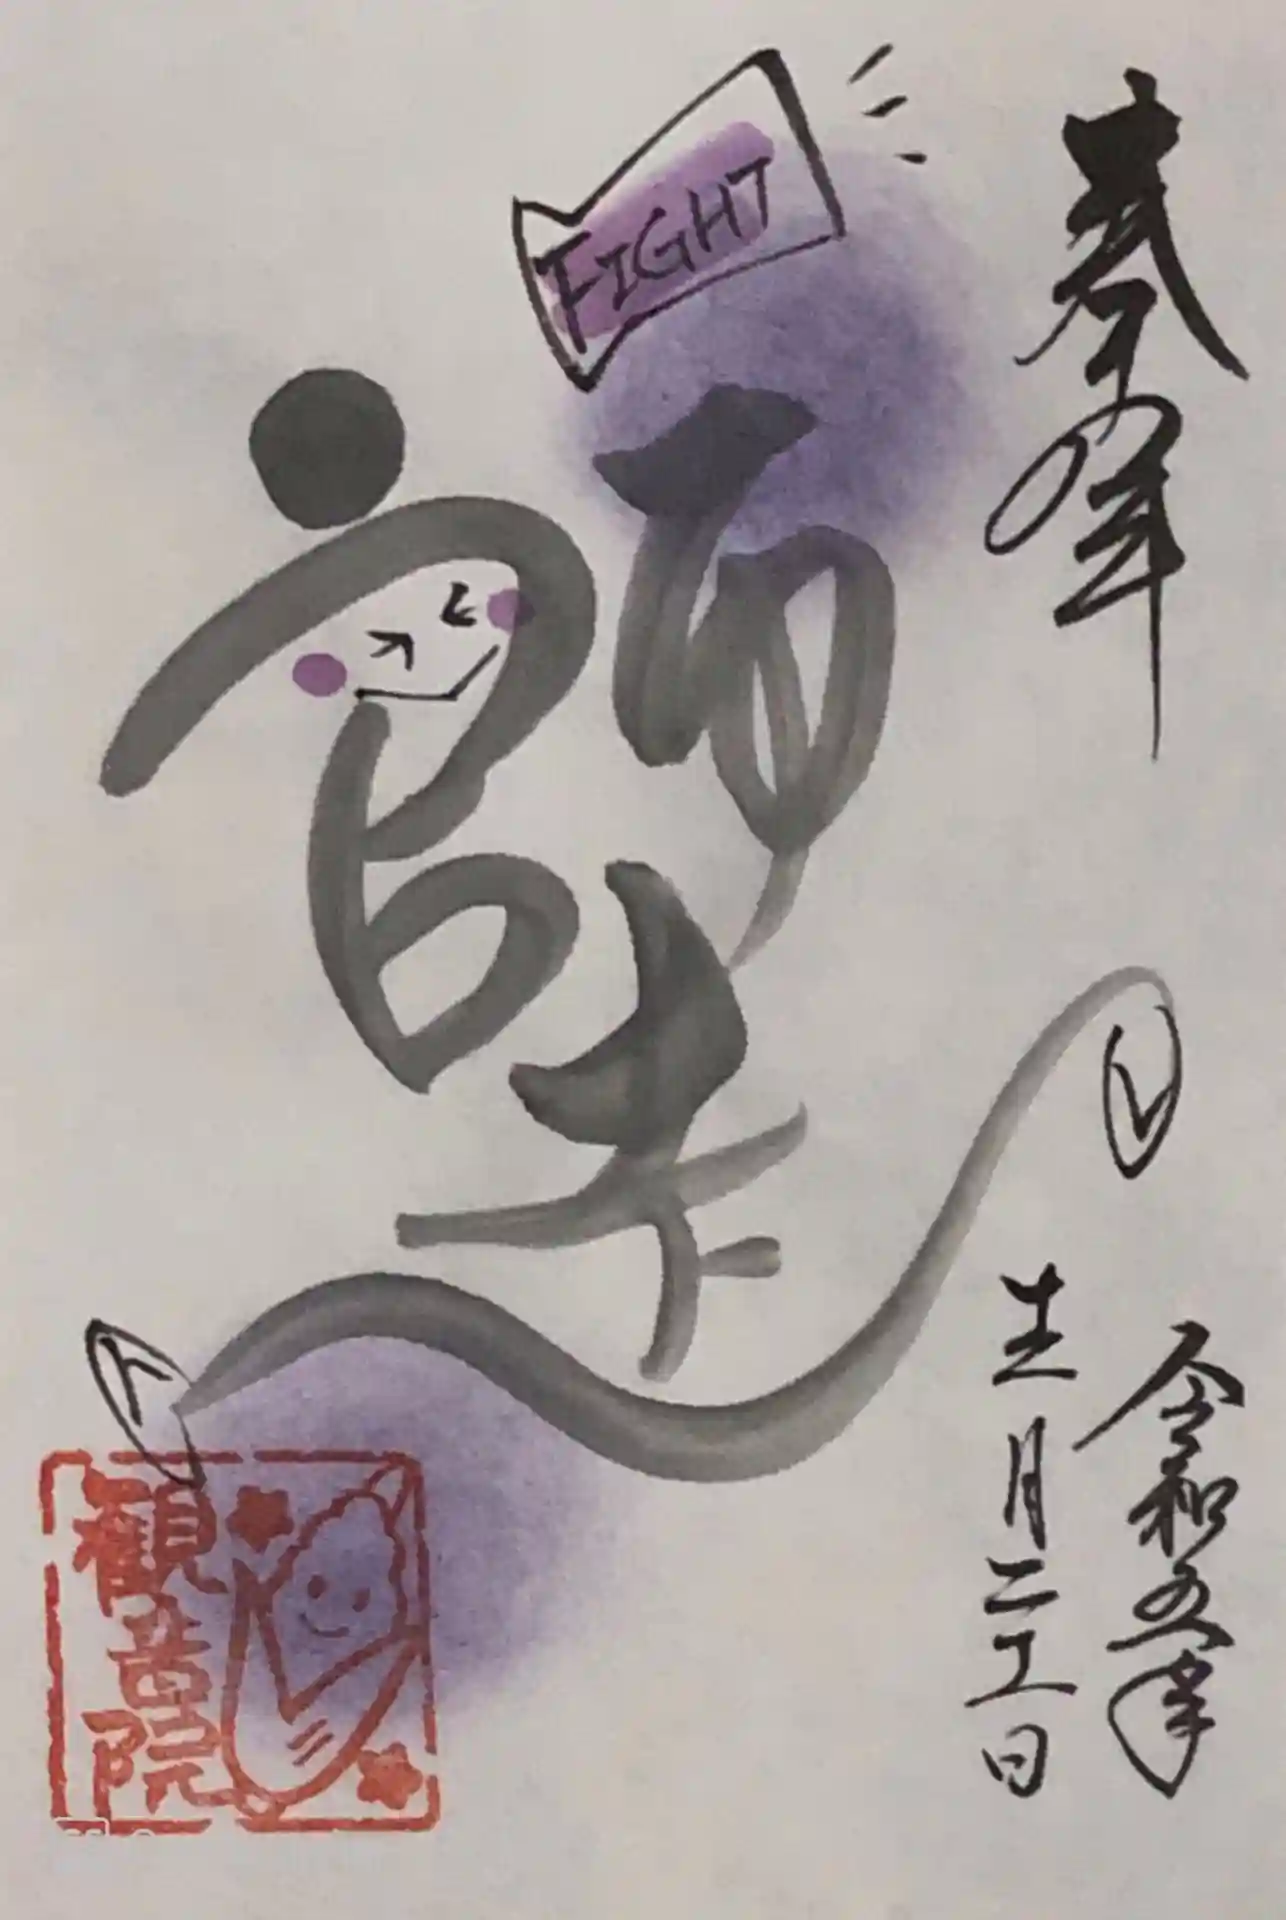 奉拝
FIGHT
師走
令和五年
十二月二十一日
観音院